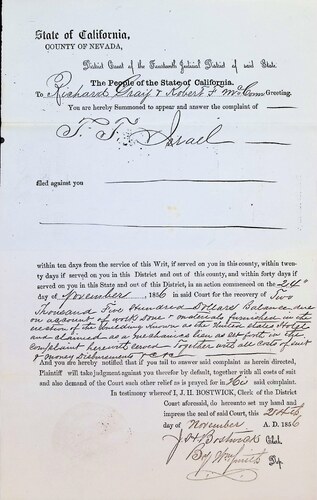 State of California,
COUNTY OF NEVADA,
District Court of the Fourteenth Judicial District of said State.
The People of the State of California.
To Richard Craig & Robert F McConn Greeting.
You are hereby Summoned to appear and answer the complaint of
T. T. Israel
filed against you
within ten days from the service of this Writ, if served on you in this county, within twen-
ty days if served on you in this District and out of this county, and within forty days if
served on you in this State and out of this District, in an action commenced on the 24th
day of November , 1856 in said Court for the recovery of Two
Thousand Five Hundred Dollars Balance due
on account of work done & materials furnished in the
erection of the building Known as the United States Hotel
and claimed as a mechanics lien as set forth in the
complaint herewith Together with all costs of suit
& money Disbursements &c &c
And you are hereby notified that if you fail to answer said complaint as herein directed,
Plaintiff will take judgment against you therefor by default, together with all costs of
suit and also demand of the Court such other relief as is prayed for in His said complaint.
In testimony whereof I, J. H. BOSTWICK, Clerk of the District
Court aforesaid, do hereunto set my hand and
impress the seal of said Court, this 24th
day of November A. D. 1856
J. H. Bostwick Clerk.
By Wm Smith Dp.